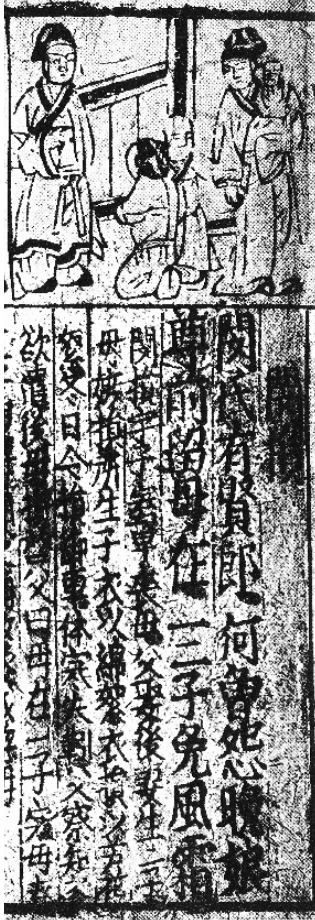 閔損
閔氏有賢郎何曾怨晚娘
尊前留母在三子免風霜
閔損字子騫早喪母父娶後妻生二子
母嫉損所生二子衣以綿絮衣損以蘆花
冬日令損御車体寒失父察知之
欲遣後母損啓父曰母在一子寒母去